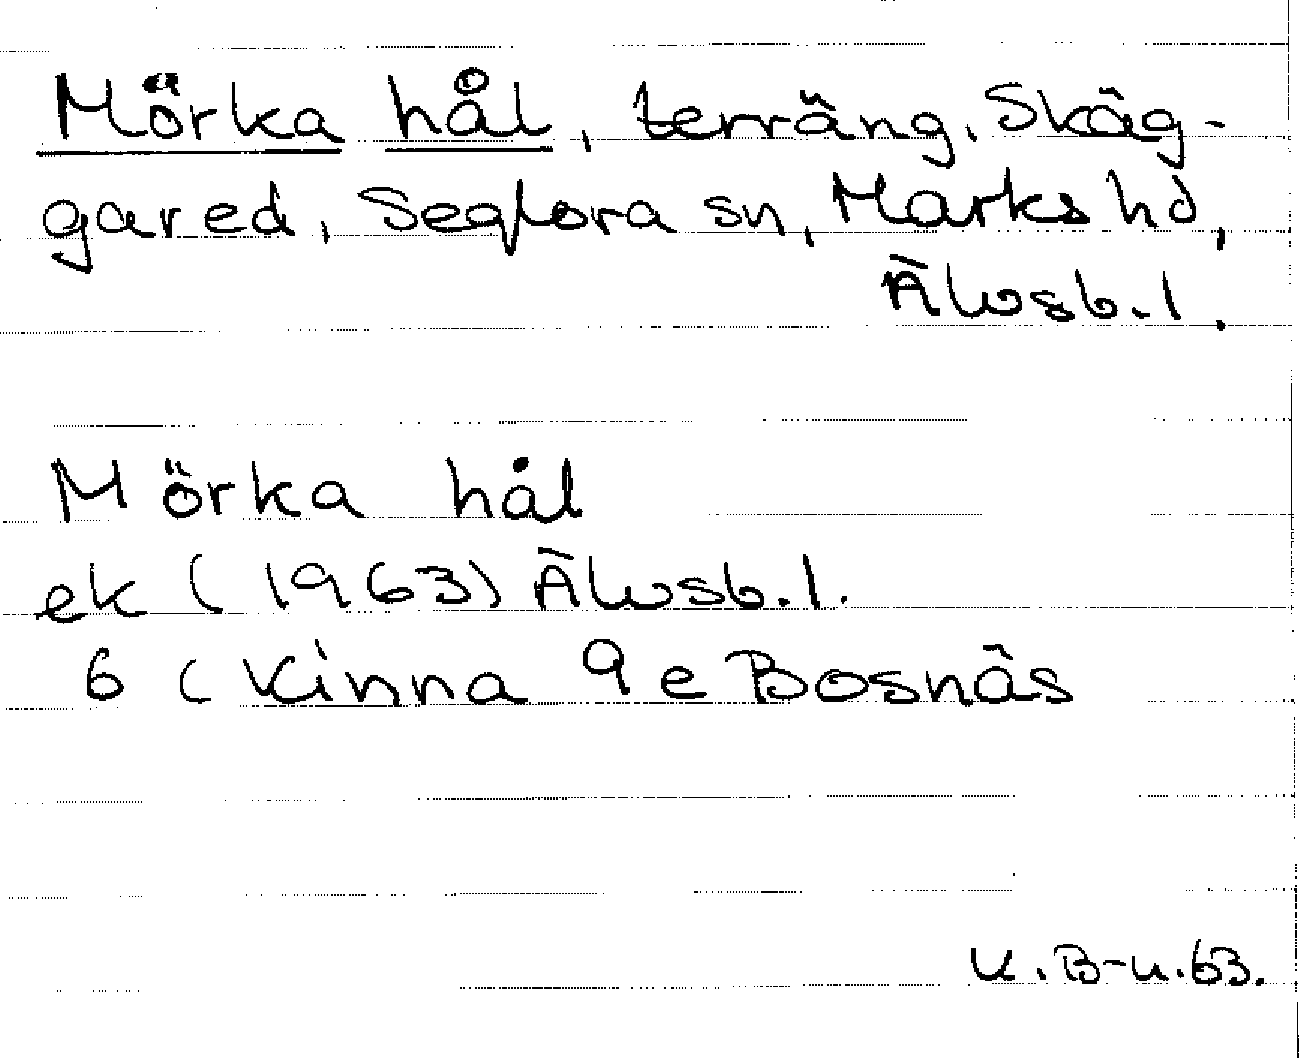 Mörka hål, terräng, Skäg-
gared, Seglora sn, Marks hd,
Älvsb. l.
Mörka hål
ek (1963) Älvsb. l.
6 C Kinna 9 e Bosnäs
K. B-n. 63.